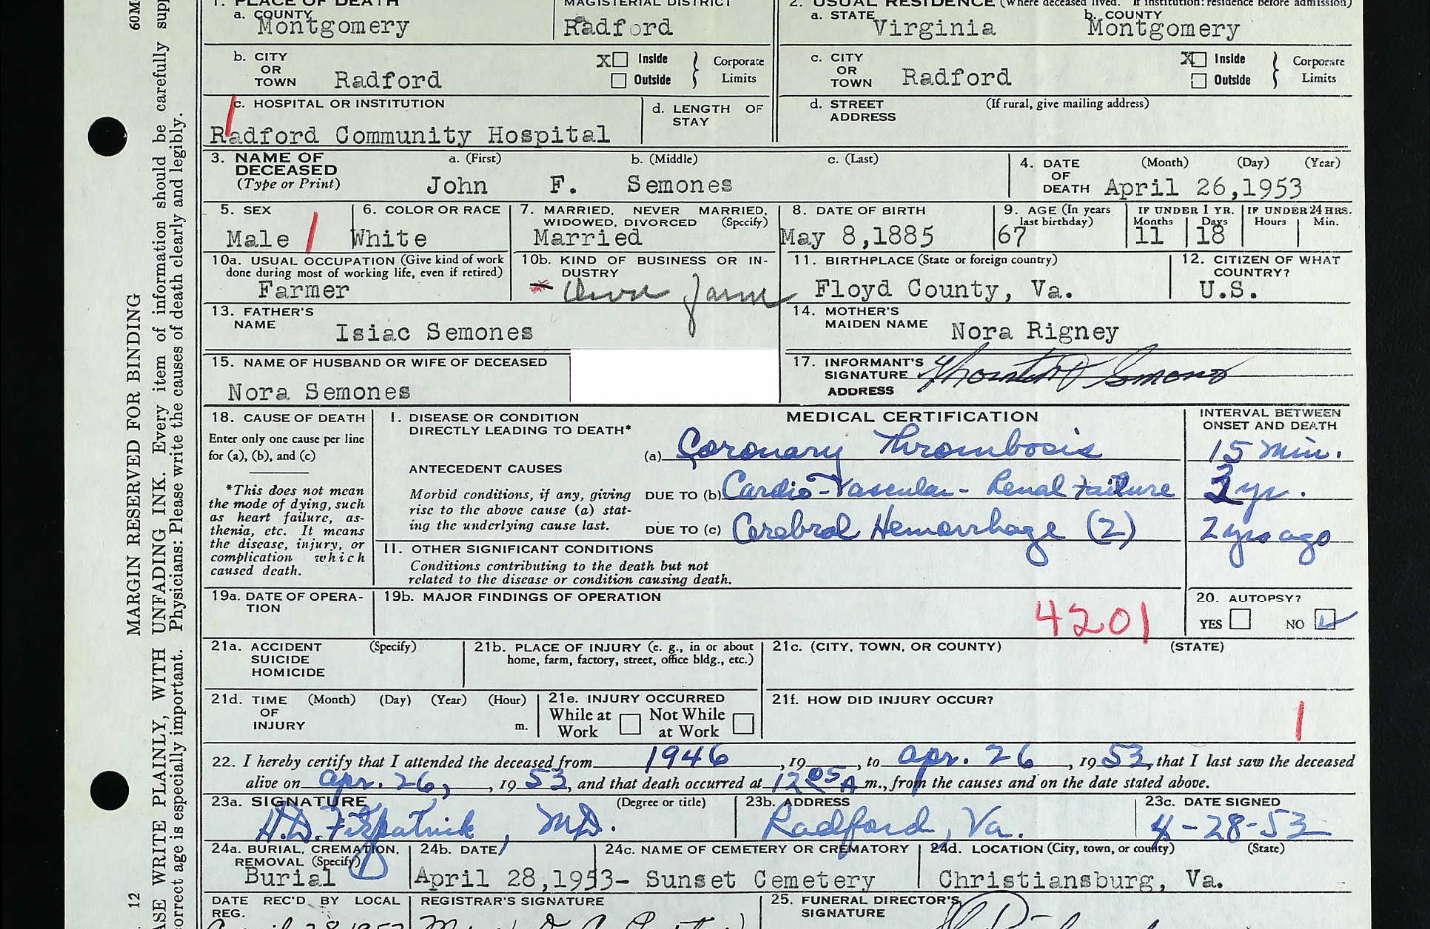 1. PLACE OF DEATH MAGISTERIAL DISTRICT 2. USUAL RESIDENCE (Where deceased lived. If institution: residence before admission)
a. COUNTY a. STATE b. COUNTY
Montgomery Radford Virginia Montgomery
b. CITY OR TOWN Radford X Inside Outside Corporate Limits c. CITY OR TOWN Radford X Inside Outside Corporate Limits
c. HOSPITAL OR INSTITUTION d. LENGTH OF STAY d. STREET ADDRESS (If rural, give mailing address)
Radford Community Hospital
3. NAME OF DECEASED (Type or Print) a. (First) b. (Middle) c. (Last) 4. DATE OF DEATH (Month) (Day) (Year)
John F. Semones April 26,1953
5. SEX 6. COLOR OR RACE 7. MARRIED, NEVER MARRIED, WIDOWED, DIVORCED (Specify) 8. DATE OF BIRTH 9. AGE (In years last birthday) IF UNDER 1 YR. Months Days IF UNDER 24 HRS. Hours Min.
Male White Married May 8,1885 67 11 18
10a. USUAL OCCUPATION (Give kind of work done during most of working life, even if retired) 10b. KIND OF BUSINESS OR INDUSTRY 11. BIRTHPLACE (State or foreign country) 12. CITIZEN OF WHAT COUNTRY?
Farmer Own farm Floyd County, Va. U.S.
13. FATHER'S NAME 14. MOTHER'S MAIDEN NAME
Isiac Semones Nora Rigney
15. NAME OF HUSBAND OR WIFE OF DECEASED 17. INFORMANT'S SIGNATURE
ADDRESS
Nora Semones
18. CAUSE OF DEATH
Enter only one cause per line for (a), (b), and (c)
*This does not mean the mode of dying, such as heart failure, asthenia, etc. It means the disease, injury, or complication which caused death.
MEDICAL CERTIFICATION INTERVAL BETWEEN ONSET AND DEATH
I. DISEASE OR CONDITION DIRECTLY LEADING TO DEATH*
(a) Coronary Thrombosis 15 min.
ANTECEDENT CAUSES
Morbid conditions, if any, giving rise to the above cause (a) stating the underlying cause last.
DUE TO (b) Cardio-Vascular-Renal Failure yr.
DUE TO (c) Cerebral Hemorrhage (2) 2 yrs ago
II. OTHER SIGNIFICANT CONDITIONS
Conditions contributing to the death but not related to the disease or condition causing death.
19a. DATE OF OPERATION 19b. MAJOR FINDINGS OF OPERATION 20. AUTOPSY?
4201 YES NO
21a. ACCIDENT SUICIDE HOMICIDE (Specify) 21b. PLACE OF INJURY (e. g., in or about home, farm, factory, street, office bldg., etc.) 21c. (CITY, TOWN, OR COUNTY) (STATE)
21d. TIME OF INJURY (Month) (Day) (Year) (Hour) m. 21e. INJURY OCCURRED While at Work Not While at Work 21f. HOW DID INJURY OCCUR?
22. I hereby certify that I attended the deceased from 1946, 19, to Apr. 26, 1953, that I last saw the deceased
alive on Apr. 26, 1953, and that death occurred at 12 05 A m., from the causes and on the date stated above.
23a. SIGNATURE (Degree or title) 23b. ADDRESS 23c. DATE SIGNED
H.D. Fitzpatrick, MD. Radford, Va. 4-28-53
24a. BURIAL, CREMATION, REMOVAL (Specify) 24b. DATE 24c. NAME OF CEMETERY OR CREMATORY 24d. LOCATION (City, town, or county) (State)
Burial April 28,1953- Sunset Cemetery Christiansburg, Va.
DATE REC'D BY LOCAL REG. REGISTRAR'S SIGNATURE 25. FUNERAL DIRECTOR'S SIGNATURE
MARGIN RESERVED FOR BINDING
WRITE PLAINLY, WITH UNFADING INK. Every item of information should be carefully
age is especially important. Physicians: Please write the causes of death clearly and legibly.
12
60M